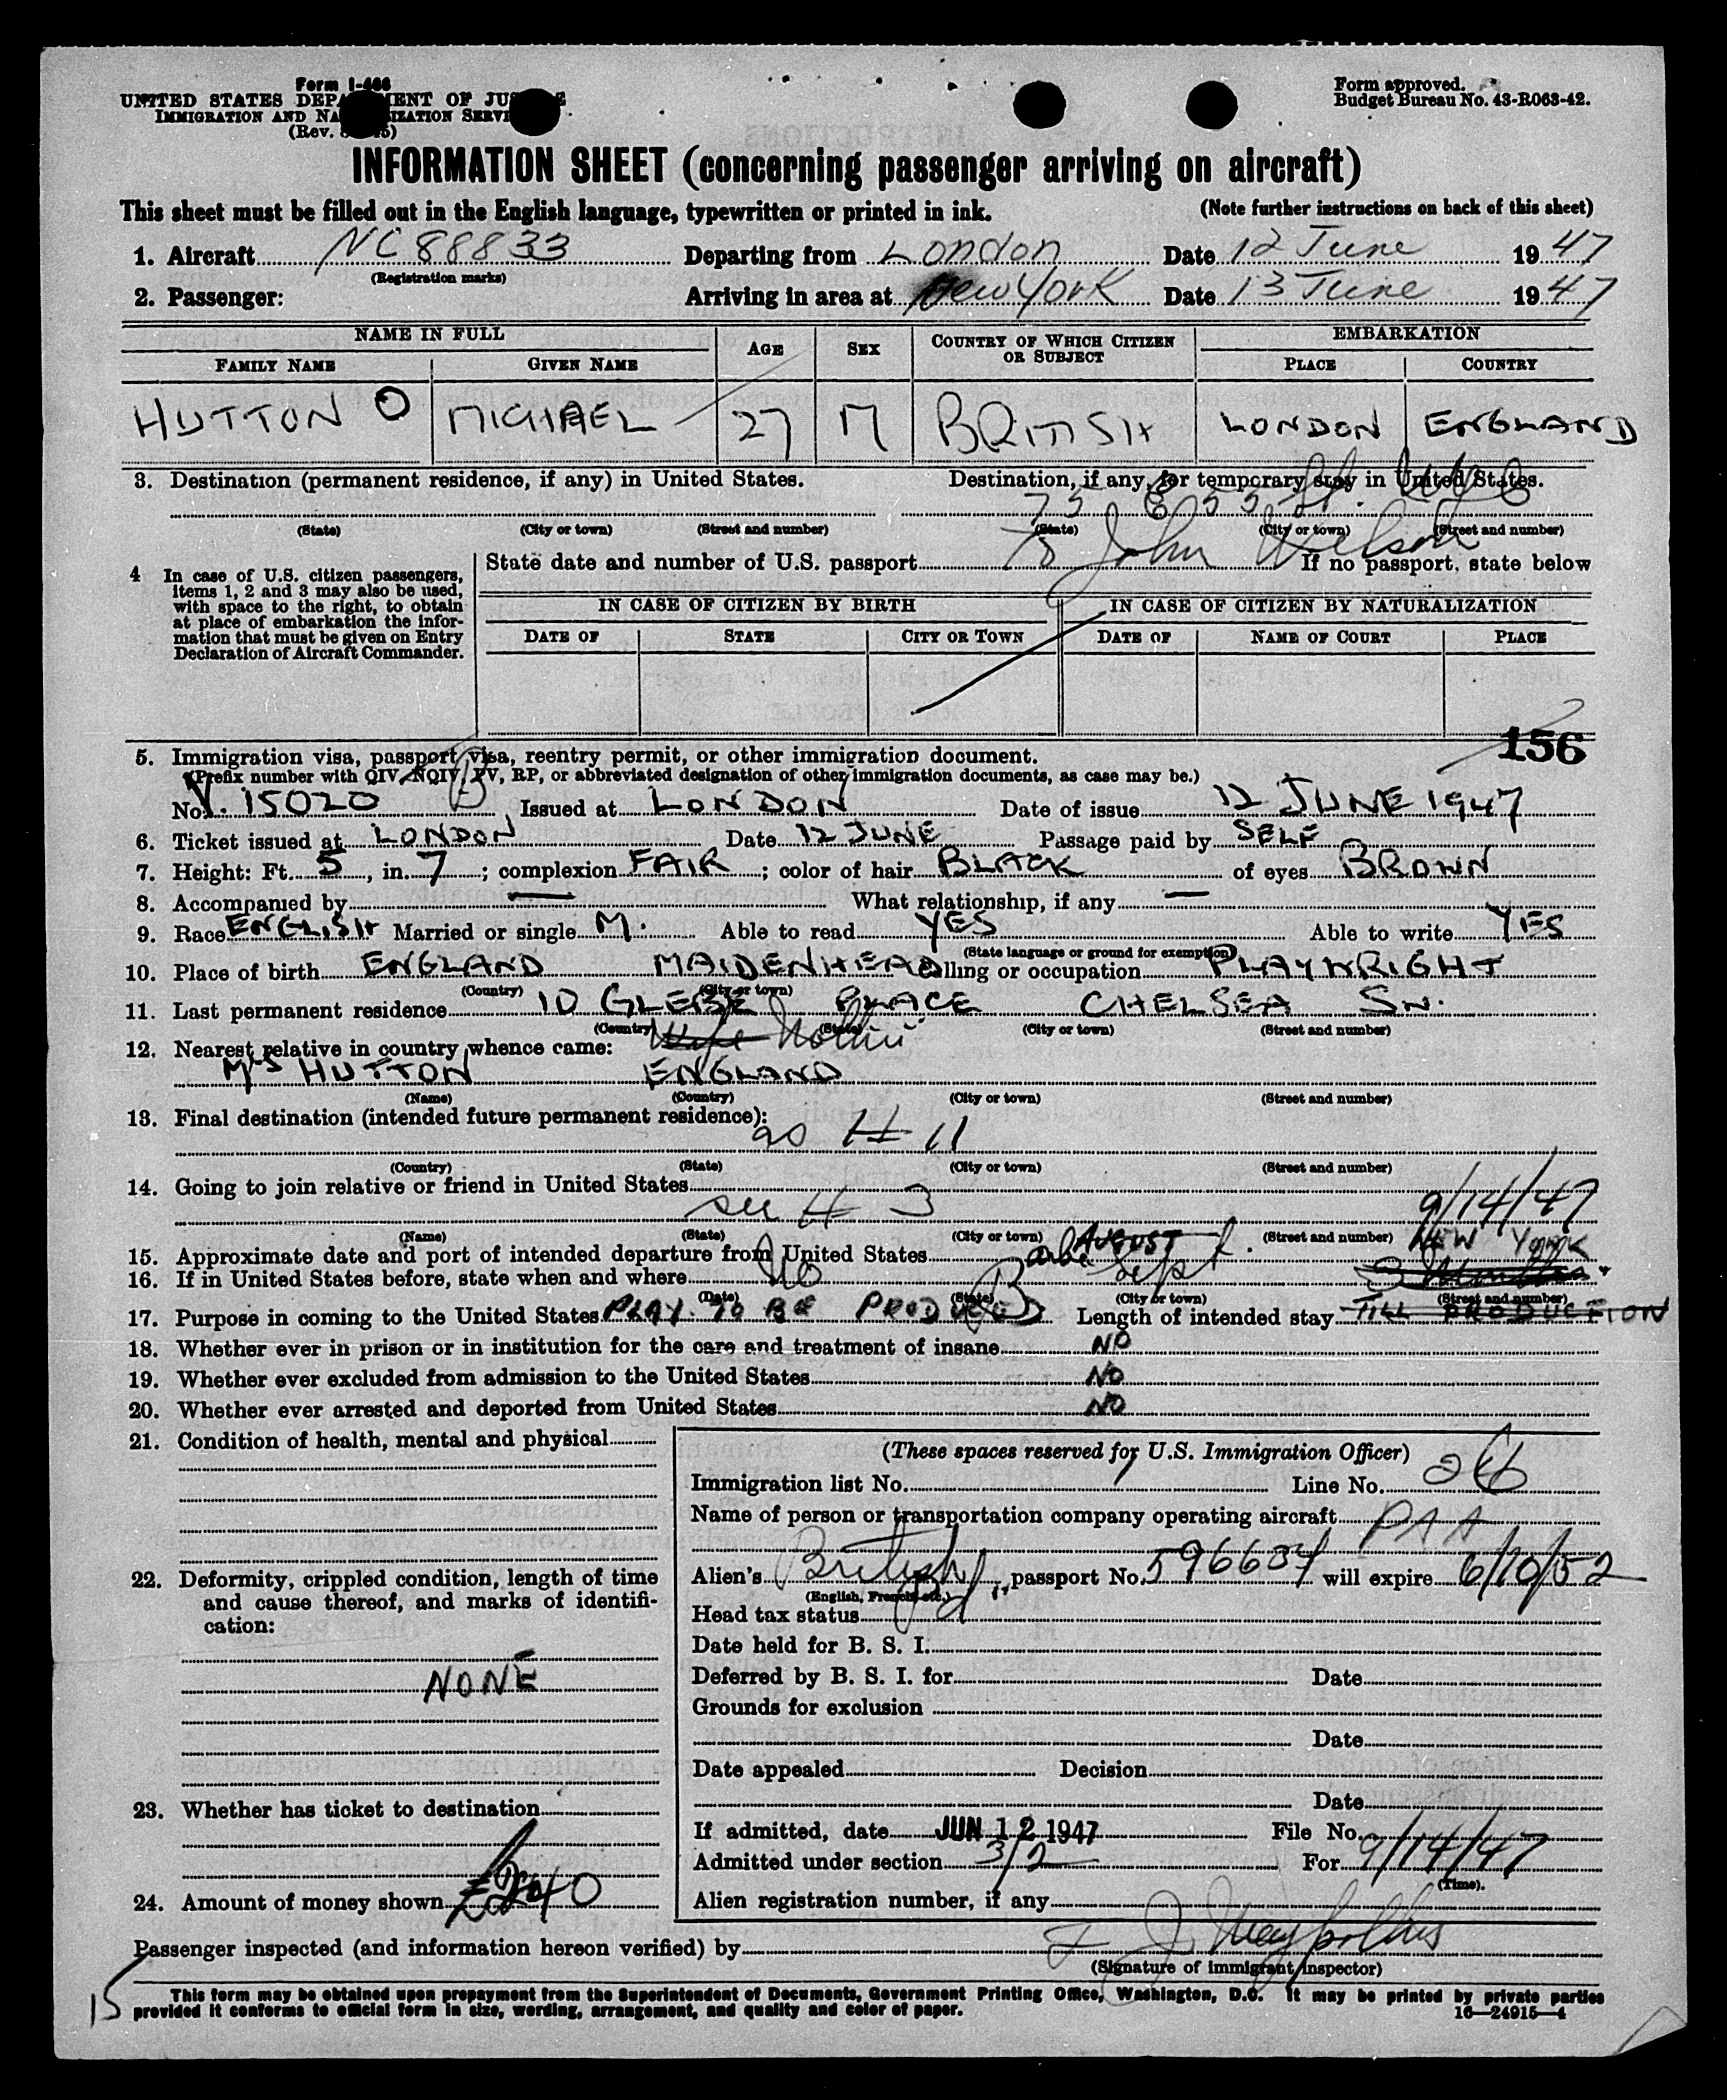 Form I-466
UNITED STATES DEPARTMENT OF JUSTICE
IMMIGRATION AND NATURALIZATION SERVICE
(Rev.
Form approved.
Budget Bureau No. 43-R063-42.
INFORMATION SHEET (concerning passenger arriving on aircraft)
This sheet must be filled out in the English language, typewritten or printed in ink. (Note further instructions on back of this sheet)
1. Aircraft NC 88833 Departing from London Date 12 June 1947
(Registration marks)
2. Passenger: Arriving in area at New York Date 13 June 1947
NAME IN FULL AGE SEX COUNTRY OF WHICH CITIZEN OR SUBJECT EMBARKATION
FAMILY NAME GIVEN NAME PLACE COUNTRY
HUTTON O MICHAEL 27 M BRITISH LONDON ENGLAND
3. Destination (permanent residence, if any) in United States. Destination, if any, for temporary stay in United States.
75 E 55 St. NYC
(State) (City or town) (Street and number) (State) (City or town) (Street and number)
℅ John Wilson
4 In case of U.S. citizen passengers, items 1, 2 and 3 may also be used, with space to the right, to obtain at place of embarkation the information that must be given on Entry Declaration of Aircraft Commander.
State date and number of U.S. passport If no passport, state below
IN CASE OF CITIZEN BY BIRTH IN CASE OF CITIZEN BY NATURALIZATION
DATE OF STATE CITY OR TOWN DATE OF NAME OF COURT PLACE
156
5. Immigration visa, passport visa, reentry permit, or other immigration document.
(Prefix number with QIV, NQIV, PV, RP, or abbreviated designation of other immigration documents, as case may be.)
No. V. 15020 Issued at LONDON Date of issue 12 JUNE 1947
6. Ticket issued at LONDON Date 12 JUNE Passage paid by SELF
7. Height: Ft. 5, in. 7; complexion FAIR; color of hair BLACK of eyes BROWN
8. Accompanied by — What relationship, if any —
9. Race ENGLISH Married or single M. Able to read YES Able to write YES
(State language or ground for exemption)
10. Place of birth ENGLAND MAIDENHEAD Calling or occupation PLAYWRIGHT
(Country) (City or town)
11. Last permanent residence 10 GLEBE PLACE CHELSEA SW.
(Country) (State) (City or town) (Street and number)
12. Nearest relative in country whence came: Wife Mother
MRS HUTTON ENGLAND
(Name) (Country) (City or town) (Street and number)
13. Final destination (intended future permanent residence):
as # 11
(Country) (State) (City or town) (Street and number)
14. Going to join relative or friend in United States
see # 3 9/14/47
(Name) (State) (City or town) (Street and number)
15. Approximate date and port of intended departure from United States AUGUST Sept. NEW YORK
16. If in United States before, state when and where No
(Date) (State) (City or town) (Street and number)
17. Purpose in coming to the United States PLAY TO BE PRODUCED Length of intended stay TILL PRODUCTION
18. Whether ever in prison or in institution for the care and treatment of insane NO
19. Whether ever excluded from admission to the United States NO
20. Whether ever arrested and deported from United States NO
21. Condition of health, mental and physical
22. Deformity, crippled condition, length of time and cause thereof, and marks of identification:
NONE
23. Whether has ticket to destination
24. Amount of money shown £240
(These spaces reserved for U.S. Immigration Officer)
Immigration list No. Line No.
Name of person or transportation company operating aircraft PAA
Alien's British passport No. 596634 will expire 6/10/52
(English, French, etc.)
Head tax status Pd
Date held for B. S. I.
Deferred by B. S. I. for Date
Grounds for exclusion
Date
Date appealed Decision
Date
If admitted, date JUN 12 1947 File No.
Admitted under section 3/2 For 9/14/47
(Time).
Alien registration number, if any
Passenger inspected (and information hereon verified) by
(Signature of immigrant inspector)
15
This form may be obtained upon prepayment from the Superintendent of Documents, Government Printing Office, Washington, D.C. It may be printed by private parties
provided it conforms to official form in size, wording, arrangement, and quality and color of paper. 16—24915—4